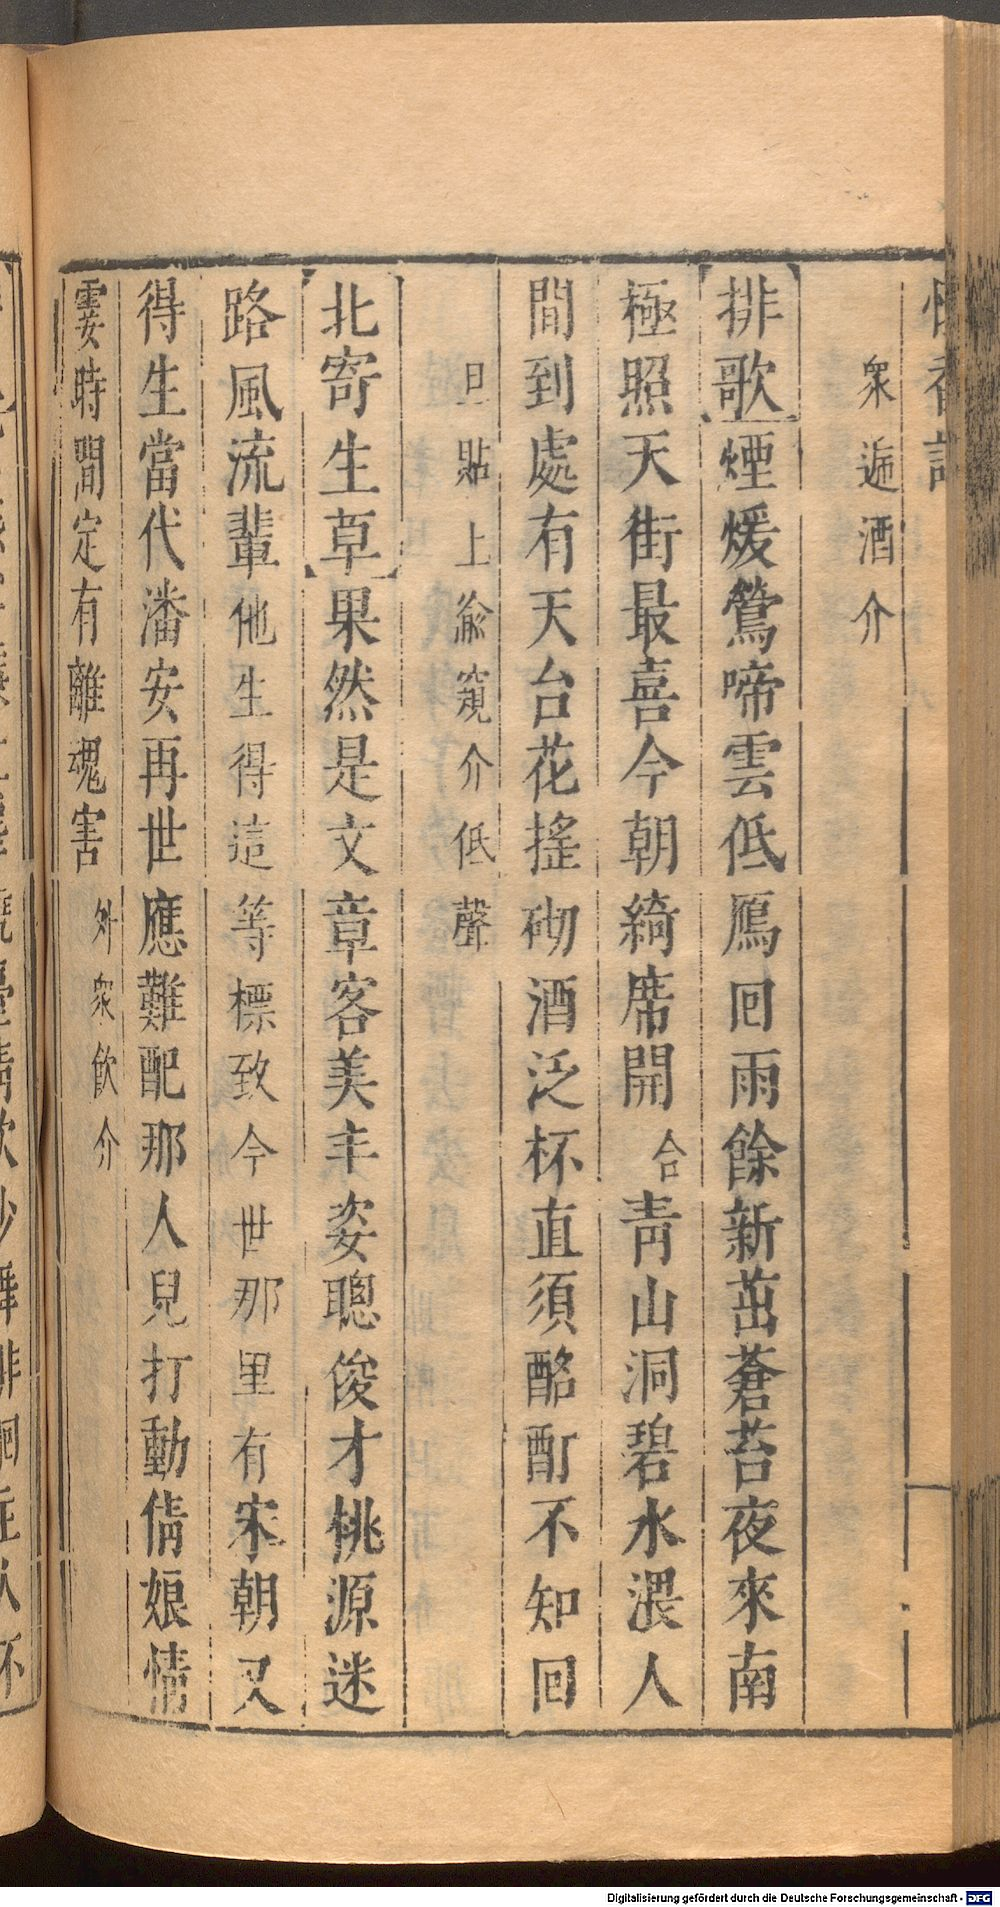 衆遞酒介
排歌煙煖鶯啼雲低鴈回雨餘新茁蒼苔夜來南
極照天街最喜今朝綺席開合靑山洞碧水湿人
間到處有天台花搖砌酒泛杯直須酩酊不知回
旦貼上偸窺介低聲
北寄生草果然是文章客美丰姿聰俊才桃源迷
路風流輩他生得這等標致今世那里有宋朝又
得生當代潘安再世應難配那人兒打動倩娘情
霎時間定有離魂害外衆飮介
Digitalisierung gefördert durch die Deutsche Forschungsgemeinschaft - DFG